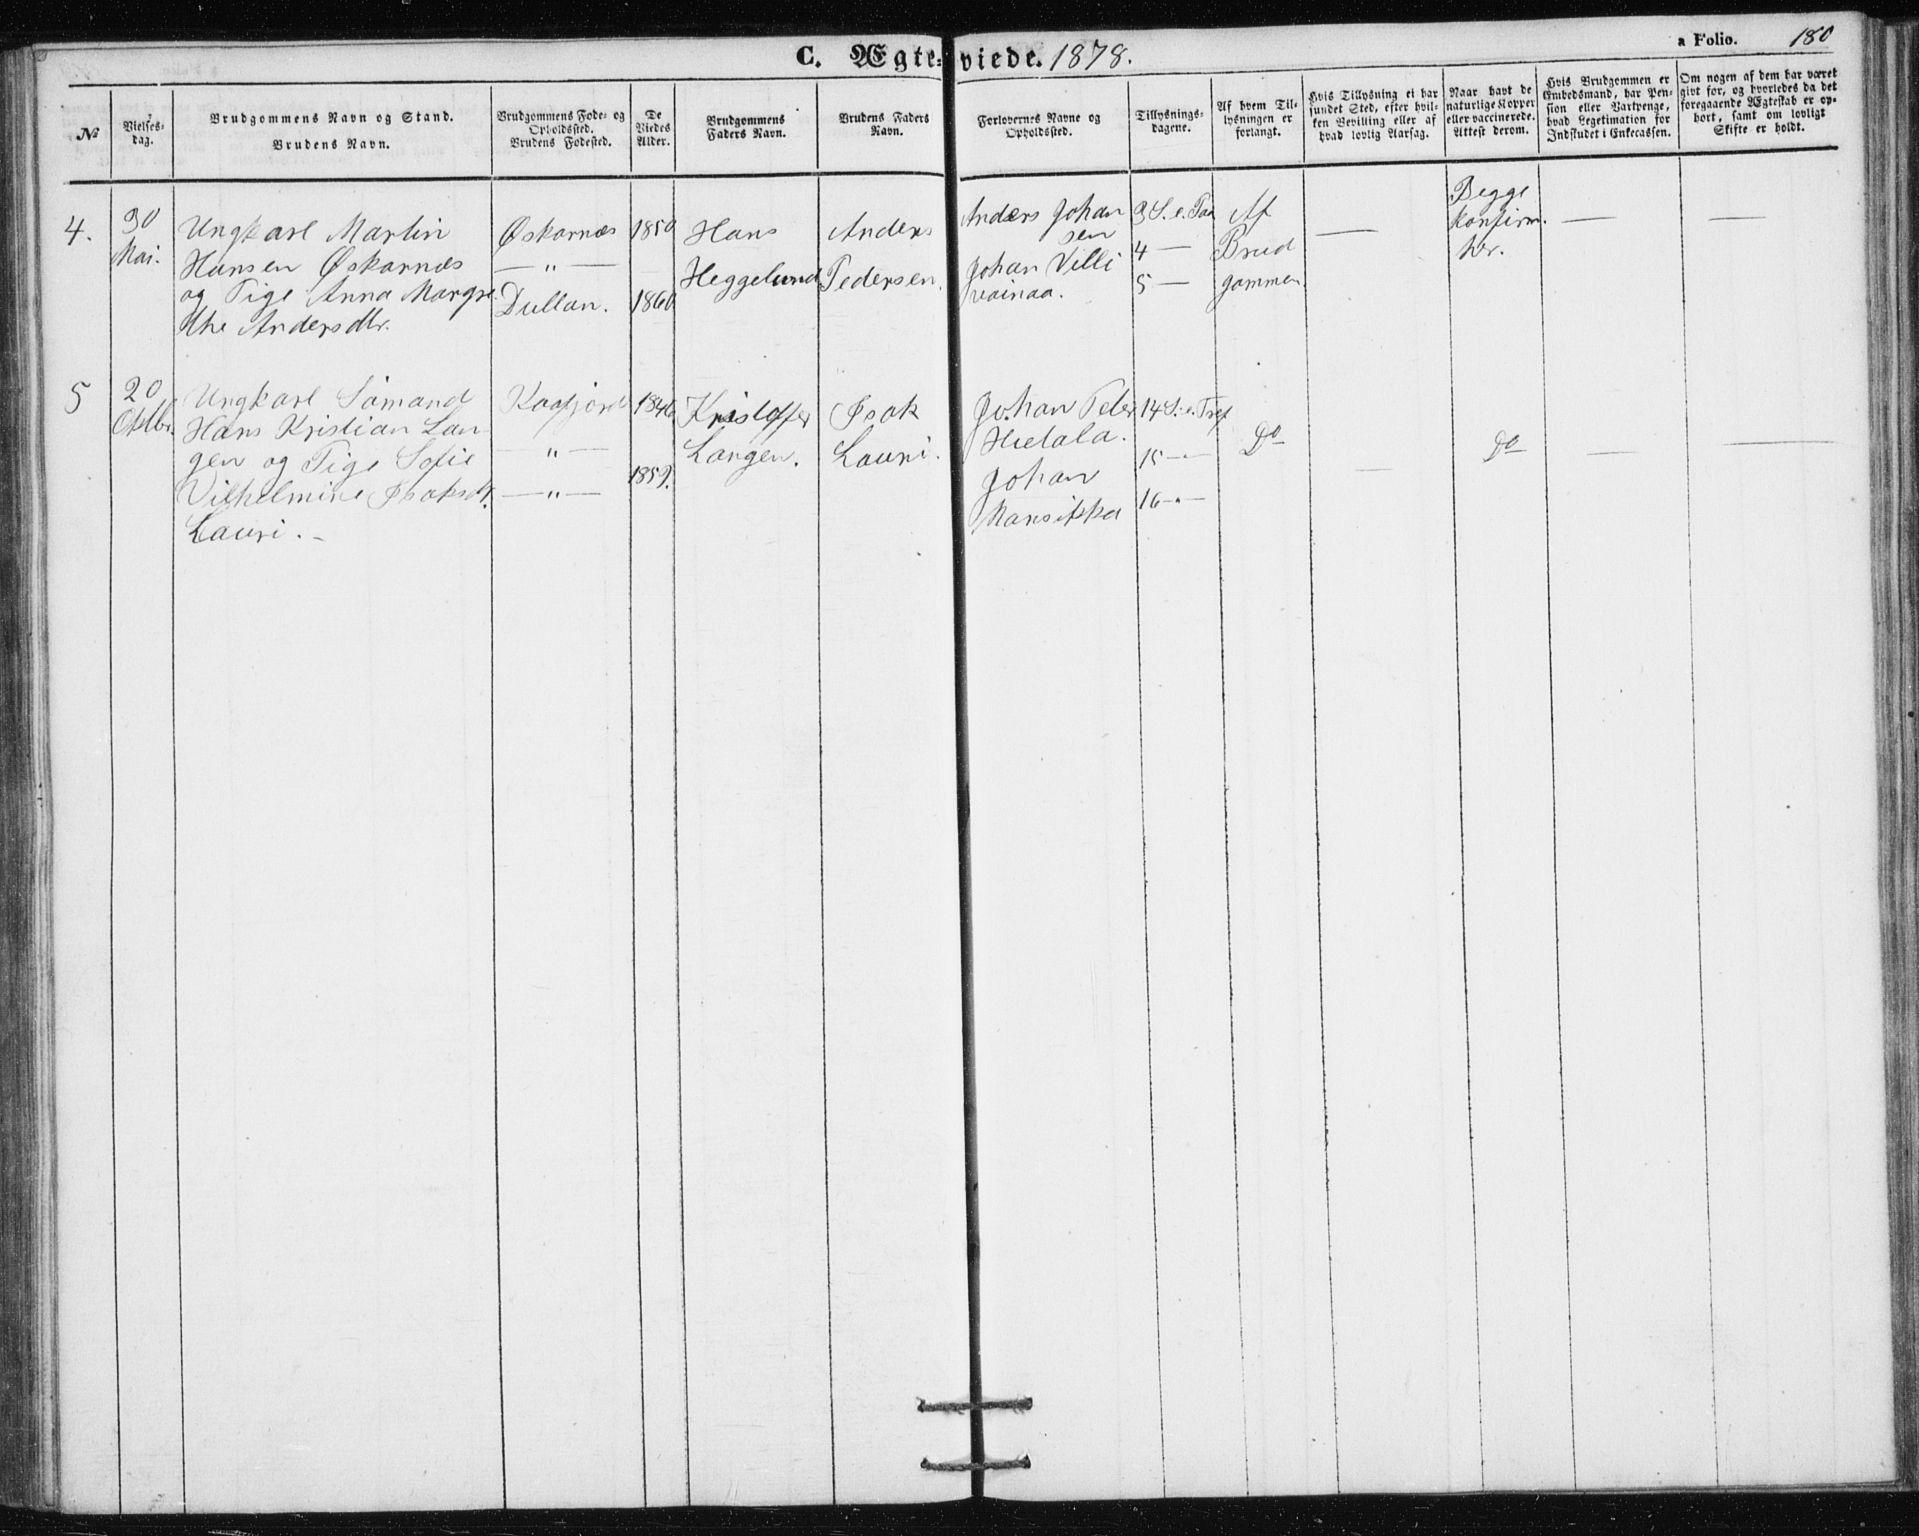 C. Ægteviede. 1878.
a Folio. 180
№
Vielses-
dag.
Brudgommens Navn og Stand.
Brudens Navn.
Brudgommens Føde- og
Opholdssted.
Brudens Fødested.
De
Viedes
Alder.
Brudgommens
Faders Navn.
Brudens Faders
Navn.
Forlovernes Navne og
Opholdssted.
Tillysnings-
dagene.
Af hvem Til-
lysningen er
forlangt.
Hvis Tillysning ei har
fundet Sted, efter hvil-
ken Bevilling eller af
hvad lovlig Aarsag.
Naar havt de
naturlige Kopper
eller vaccinerede.
Attest derom.
Hvis Brudgommen er
Embedsmand, har Pen-
sion eller Vartpenge,
hvad Legetimation for
Indskudet i Enkecassen.
Om nogen af dem har været
givt før, og hvorledes da det
foregaaende Ægteskab er op-
hørt, samt om lovligt
Skifte er holdt.
4.
30
Mai.
Ungkarl Martin
Hansen Øskarnæs
og Pige Anna Margre
the Andersdtr.
Øskarnæs
— „ —
Dullan.
1850
1860
Hans
Heggelund
Anders
Pedersen.
Anders Johan
sen
Johan Villi
vainaa.
3 S. e. Paa
4 —
5 —
Af
Brud
gommen
—
Begge
konfirm.
her.
—
—
5
20
Oktbr.
Ungkarl Sømand
Hans Kristian Lan-
gen og Pige Sofie
Vilhelmine Isaksdt.
Lauri. –
Kaafjord
— „ —
— „ —
1846
1859.
Kristoffer
Langen.
Isak
Lauri.
Johan Peter
Hietala.
Johan
Mansikka
14 S. e. Tref
15 -„-
16 -„-
Do
—
Do
—
—